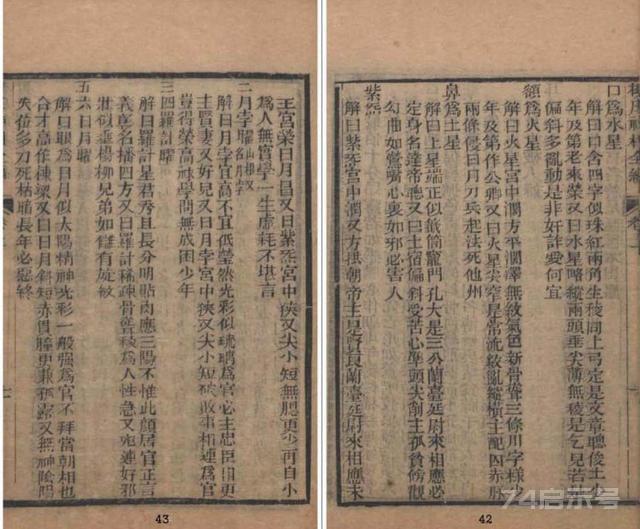 口為水星
解曰口含四字似珠紅兩角生稜向上弓定是文章聰俊士少
年及第老來榮又曰水星略綻兩頭垂尖薄無稜是乞兒若是
偏斜多亂動是非奸詐愛何宜
額為火星
解曰火星宮中濶方平潤澤無紋氣色新骨聳三條川字樣少
年及第作公卿又曰火星尖窄是常流紋亂縱橫主配囚赤脉
兩條侵日月刀兵赴法死他州
鼻為土星
解曰土星端正似截筒竈門孔大是三公蘭臺廷尉來相應必
定身名達帝聰又曰土宿偏斜受苦心準頭尖削主孤貧傍觀
勾曲心裏如邪必害人
紫炁
解曰紫炁宮中濶又方拱朝帝主是賢良蘭臺廷尉來相應末
42
主宮榮日月昌又曰紫炁宮中狹又尖小短無腮更少再自小
為人無官學一生虛耗不堪言
二月孛曜
解曰月孛宜高不宜低瑩然光彩似琉璃為官必主忠臣相更
主賢妻又好兒又曰月孛宮中狹又尖小短破敗事相連為官
豈得榮高祿學問無成困少年
三四羅計曜
解曰羅計星君秀且長分明貼肉應三陽不惟此顏居官正言
義彰名播四方又曰羅計稀疎骨聳稜為人性急又兇逞奸邪
狀似垂楊柳兄弟如讎有旋紋
五六日月曜
解曰眼為日月似太陽精神光彩一般強為官不拜當朝相也
合才高作棟梁又曰日月斜短赤貫瞳更兼孤露又無神陰陽
失位多刀死枯腦長年必惡終
43
74启示号